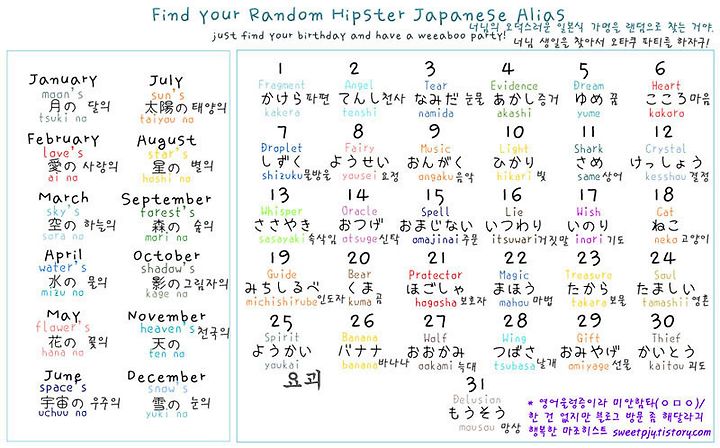 Find your Random Hipster Japanese Alias
너님의 오덕스러운 일본식 가명을 랜덤으로 찾는 거야.
just find your birthday and have a weeaboo party!
너님 생일을 찾아서 오타쿠 파티를 하자구!
January July
moon's sun's
月の 달의 太陽の 태양의
tsuki no taiyou no
February August
love's star's
愛の 사랑의 星の 별의
ai no hoshi no
March September
sky's forest's
空の 하늘의 森の 숲의
sora no mori no
April October
water's shadow's
水の 물의 影の 그림자의
mizu no kage no
May November
flower's heaven's 천국의
花の 꽃의 天の
hana no ten no
June December
space's snow's
宇宙の 우주의 雪の 눈의
uchuu no yuki no
1 2 3 4 5 6
Fragment Angel Tear Evidence Dream Heart
かけら 파편 てんし 천사 なみだ 눈물 あかし 증거 ゆめ 꿈 こころ 마음
kakera tenshi namida akashi yume kokoro
7 8 9 10 11 12
Droplet Fairy Music Light Shark Crystal
しずく ようせい おんがく ひかり さめ けっしょう
shizuku 물방울 yousei 요정 ongaku 음악 hikari 빛 same 상어 kesshou 결정
13 14 15 16 17 18
Whisper Oracle Spell Lie Wish Cat
ささやき おつげ おまじない いつわり いのり ねこ
sasayaki 속삭임 otsuge 신탁 omajinai 주문 itsuwari 거짓말 inori 기도 neko 고양이
19 20 21 22 23 24
Guide Bear Protector Magic Treasure Soul
みちしるべ くま ほごしゃ まほう たから たましい
michishirube 인도자 kuma 곰 hogosha 보호자 mahou 마법 takara 보물 tamashii 영혼
25 26 27 28 29 30
Spirit Banana Wolf Wing Gift Thief
ようかい バナナ おおかみ つばさ おみやげ かいとう
youkai banana 바나나 ookami 늑대 tsubasa 날개 omiyage 선물 kaitou 괴도
요괴
31
Delusion
もうそう
mousou 망상
* 영어울렁증이라 미안함돠(ㅇㅁㅇ)/
한 건 없지만 블로그 방문 좀 해달라긔
행복한 마조히스트 sweetpjy.tistory.com